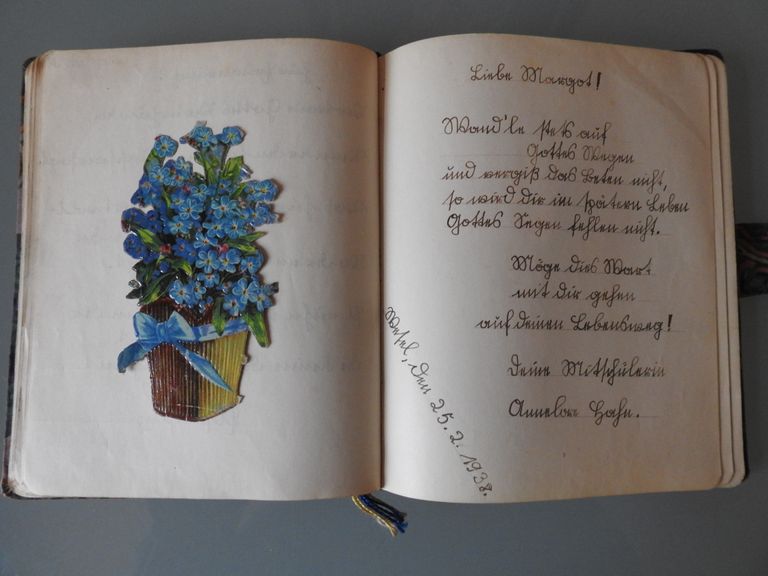 Liebe Margot!
Wand'le stets auf
Gottes Wegen
und vergiß das Beten nicht,
so wird dir im spätern Leben
Gottes Segen fehlen nicht.
Möge dies Wort
mit dir gehen
auf deinen Lebensweg!
Deine Mitschülerin
Annelore Hahn.
Wesel, den 25.2.1938.